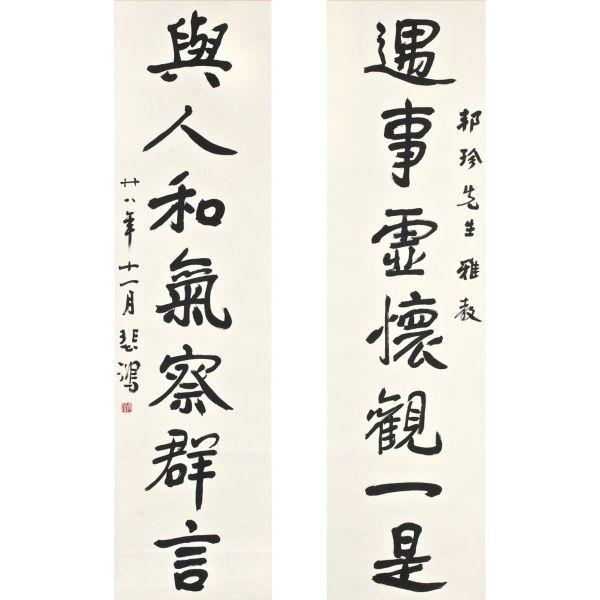 遇事虛懷觀一是
邦珍先生雅教
與人和氣察群言
廿八年十一月悲鴻